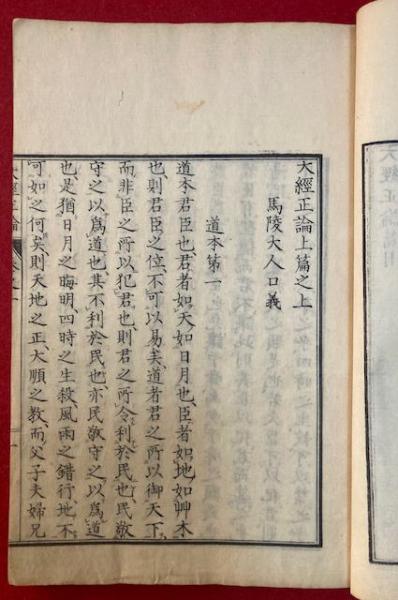 大經正論上篇之上
馬陵大人口義
道本第一
道本君臣也君者如天如日月也臣者如地如艸木
也則君臣之位不可以易矣道者君之所以御天下
而非臣之所以犯君也則君之所令利於民也民敬
守之以爲道也其不利於民也亦民敬守之以爲道
也是猶日月之晦明四時之生殺風雨之錯行地不
可如之何矣則天地之正大順之教而父子夫婦兄
大經正論